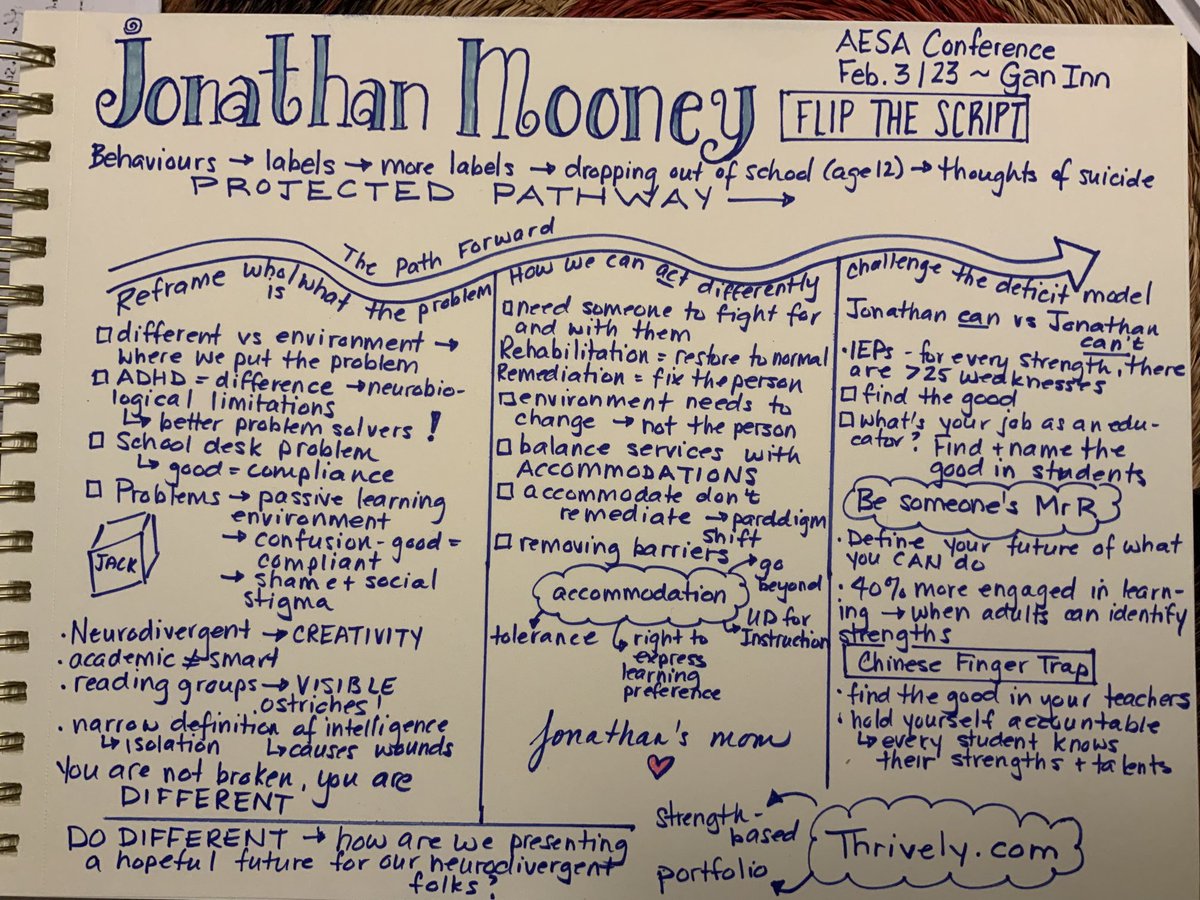 Jonathan Mooney
AESA Conference
Feb. 3/23 ~ Gan Inn
FLIP THE SCRIPT
Behaviours → labels → more labels → dropping out of school (age 12) → thoughts of suicide
PROJECTED PATHWAY →
The Path Forward
Reframe who/what is the problem
□ different vs environment →
where we put the problem
□ ADHD = difference → neurobio-
logical limitations
↳ better problem solvers!
□ School desk problem
↳ good = compliance
□ Problems → passive learning
environment
→ confusion - good =
compliant
→ shame + social
stigma
JACK
· Neurodivergent → CREATIVITY
· academic ≠ smart
· reading groups → VISIBLE
ostriches!
· narrow definition of intelligence
↳ isolation ↳ causes wounds
You are not broken, you are
DIFFERENT
How we can act differently
□ need someone to fight for
and with them
Rehabilitation = restore to normal
Remediation = fix the person
□ environment needs to
change → not the person
□ balance services with
ACCOMMODATIONS
□ accommodate don't
remediate → parddigm
shift
□ removing barriers
accommodation
→ go
beyond
tolerance
↳ right to
express
learning
preference
↳ UD for
Instruction
Jonathan's mom
Challenge the deficit model
Jonathan can vs Jonathan
can't
· IEPs - for every strength, there
are >25 weaknesses
□ find the good
□ what's your job as an edu-
cator? Find + name the
good in students
Be someone's Mr R
· Define your future of what
you CAN do
· 40% more engaged in learn-
ing → when adults can identify
strengths
Chinese Finger Trap
· find the good in your teachers
· hold yourself accountable
↳ every student knows
their strengths + talents
DO DIFFERENT → how are we presenting
a hopeful future for our neurodivergent
folks?
strength-
based
portfolio
Thrively.com